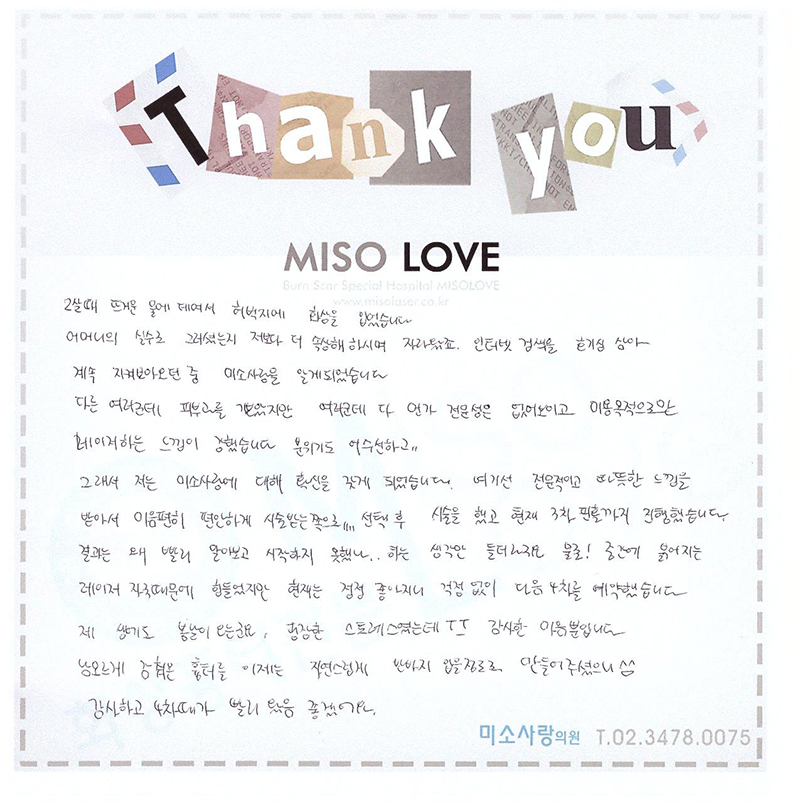 Thank you
MISO LOVE
Burn Scar Special Hospital MISOLOVE
www.misolaser.co.kr
2살때 뜨거운 물에 데여서 허벅지에 화상을 입었습니다
어머니의 실수로 그러셨는지 저보다 더 속상해 하시며 자라왔죠. 인터넷 검색을 호기심 삼아
계속 지켜보아오던 중 미소사랑을 알게되었습니다
다른 여러군데 피부과를 가보았지만 여러군데 다 먼가 전문성은 없어보이고 미용목적으로만
레이저하는 느낌이 강했습니다 분위기도 어수선하고..
그래서 저는 미소사랑에 대해 확신을 갖게 되었습니다. 여기선 전문적이고 따뜻한 느낌을
받아서 마음편히 편안하게 시술받는쪽으로,,,, 선택 후 시술을 했고 현재 3차 핀홀까지 진행했습니다.
결과는 왜 빨리 알아보고 시작하지 못했나.. 하는 생각만 들더라구요 물론! 중간에 붉어지는
레이저 자국때문에 힘들었지만 현재는 점점 좋아지니 걱정없이 다음 4차를 예약했습니다
제 생에도 봄날이 오는군요, 굉장한 스트레스였는데 TT 감사한 마음뿐입니다
남모르게 감춰온 흉터를 이제는 자연스럽게 반바지 입을정도로 만들어주셨으니 ^^
감사하고 4차때가 빨리 왔음 좋겠어요.
미소사랑의원 T.02.3478.0075